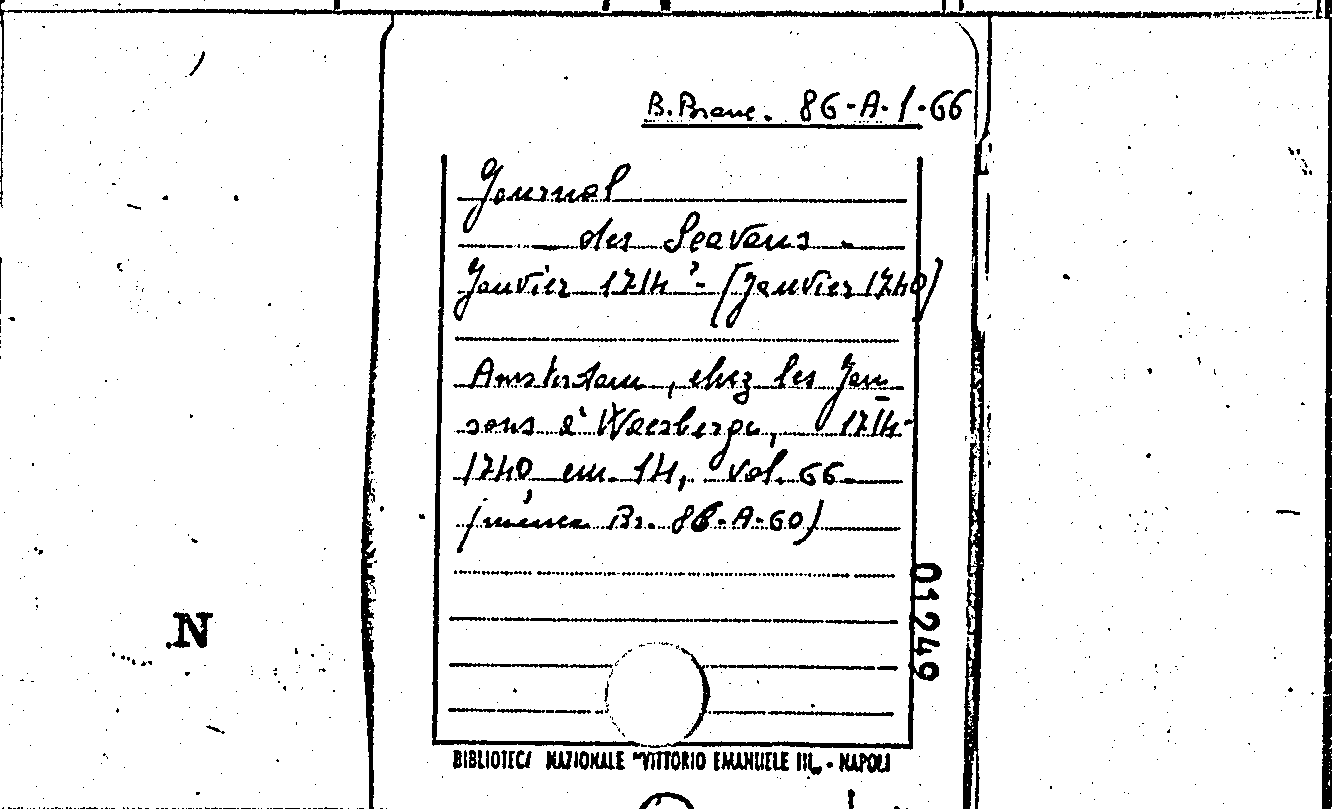 B. Branc. 86-A-1-66
Journal
des Sçavans -
Janvier 1714 - (Janvier 1740)
Amsterdam, chez les Jan
sons a' Waesberge, 1714-
1740 in. 14, vol. 66
(manca Br. 86-A-60)
01249
N
BIBLIOTECA NAZIONALE "VITTORIO EMANUELE III" - NAPOLI